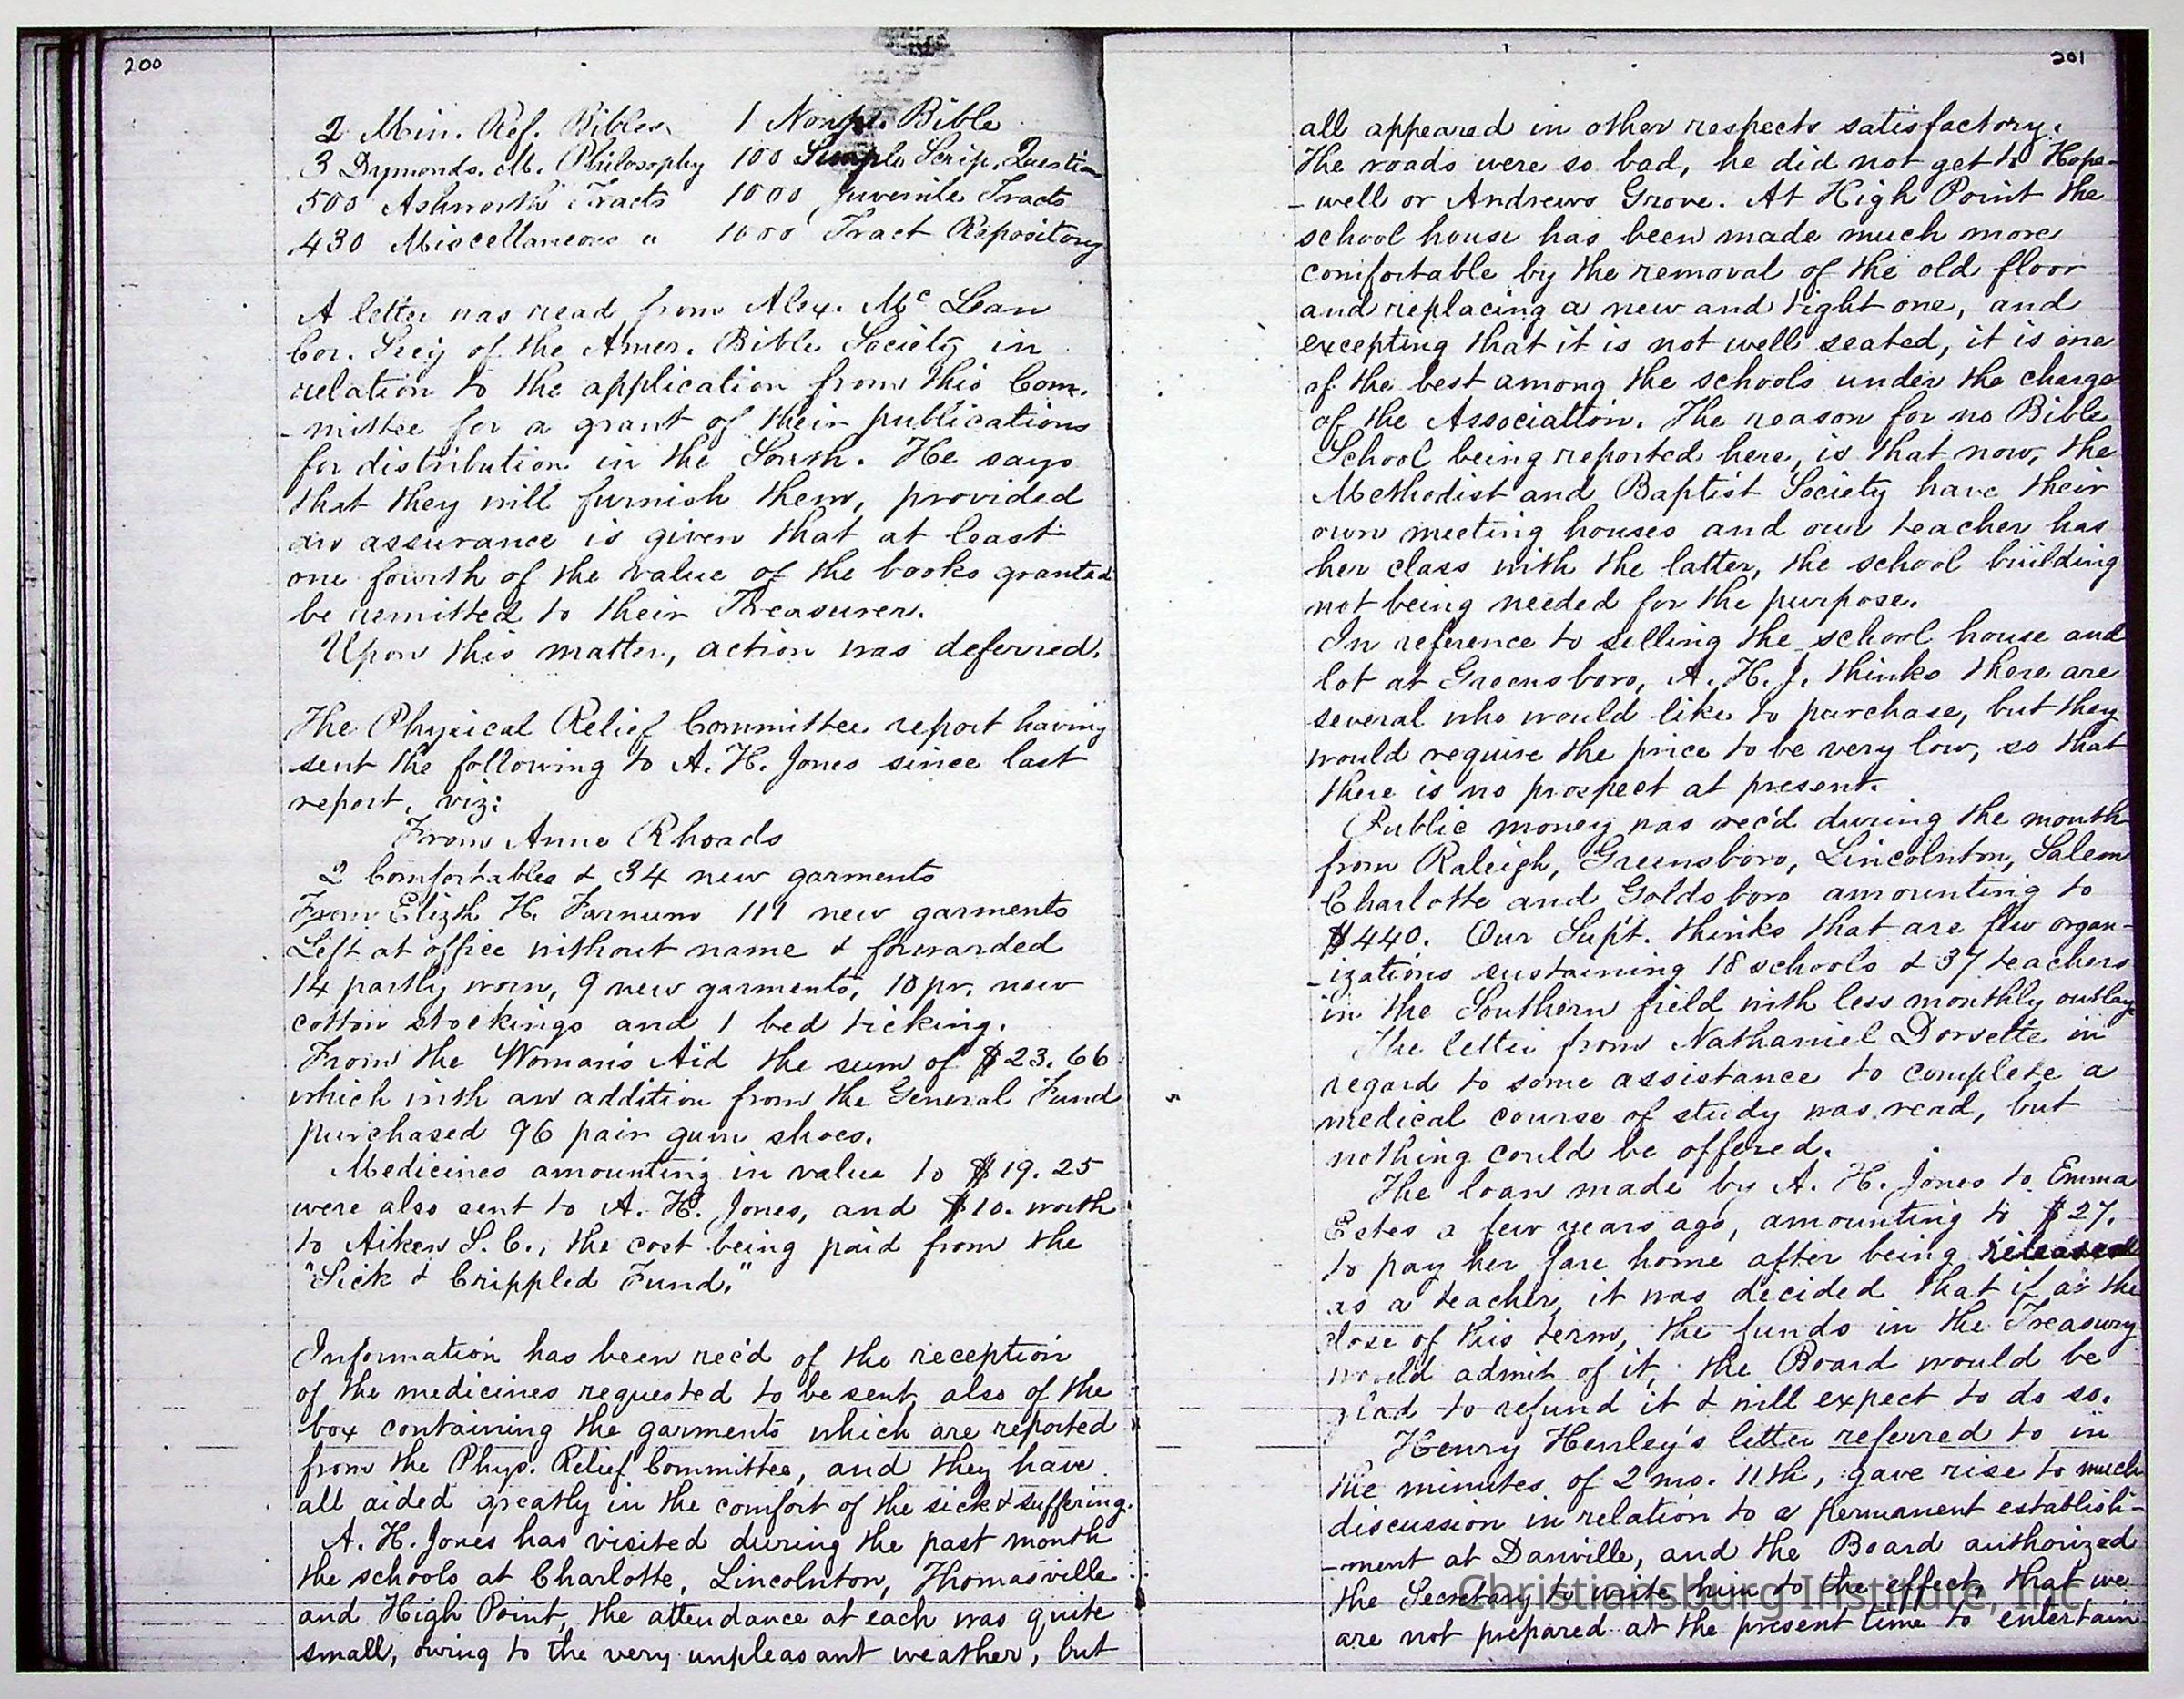 200
2 Min. Ref. Bibles 1 Nonpl. Bible
3 Dymonds. M. Philosophy 100 Simple Scrip. Question
500 Ashworth Tracts 1000 Juvenile Tracts
430 Miscellaneous " 1000 Tract Repository
A letter was read from Alex. Mc Lean
Cor. Secy of the Amer. Bible Society in
relation to the application from this Com.
-mittee for a grant of their publications
for distribution in the South. He says
that they will furnish them, provided
an assurance is given that at least
one fourth of the value of the books granted
be remitted to their Treasurer.
Upon this matter, action was deferred.
The Physical Relief Committee report having
sent the following to A. H. Jones since last
report, viz:
From Anne Rhoads
2 Comfortables & 34 new garments
From Elizth H. Farnum 111 new garments
Left at office without name & forwarded
14 partly worn, 9 new garments, 10 pr. new
cotton stockings and 1 bed ticking.
From the Woman's Aid the sum of $23.66
which with an addition from the General Fund
purchased 96 pair gum shoes.
Medicines amounting in value to $19.25
were also sent to A. H. Jones, and $10. worth
to Aiken S. C., the cost being paid from the
"Sick & Crippled Fund."
Information has been rec'd of the reception
of the medicines requested to be sent, also of the
box containing the garments which are reported
from the Phys. Relief Committee, and they have
all aided greatly in the comfort of the sick & suffering.
A. H. Jones has visited during the past month
the schools at Charlotte, Lincolnton, Thomasville
and High Point, the attendance at each was quite
small, owing to the very unpleasant weather, but
201
all appeared in other respects satisfactory.
The roads were so bad, he did not get to Hope-
-well or Andrews Grove. At High Point the
school house has been made much more
comfortable by the removal of the old floor
and replacing a new and tight one, and
excepting that it is not well seated, it is one
of the best among the schools under the charge
of the Association. The reason for no Bible
School being reported here, is that now, the
Methodist and Baptist Society have their
own meeting houses and our teacher has
her class with the latter, the school building
not being needed for the purpose.
In reference to selling the school house and
lot at Greensboro, A. H. J. thinks there are
several who would like to purchase, but they
would require the price to be very low, so that
there is no prospect at present.
Public money was rec'd during the month
from Raleigh, Greensboro, Lincolnton, Salem
Charlotte and Goldsboro amounting to
$440. Our Supt. thinks that are few organ-
-izations sustaining 18 schools & 37 teachers
in the Southern field with less monthly outlay
The letter from Nathaniel Dorsette in
regard to some assistance to complete a
medical course of study was read, but
nothing could be offered.
The loan made by A. H. Jones to Emma
Estes a few years ago, amounting to $27.
to pay her fare home after being released
as a teacher, it was decided that if at the
close of this term, the funds in the Treasury
would admit of it, the Board would be
glad to refund it & will expect to do so.
Henry Henley's letter referred to in
the minutes of 2 mo. 11th, gave rise to much
discussion in relation to a permanent establish-
-ment at Danville, and the Board authorized
the Secretary to write him to the effect, that we
are not prepared at the present time to entertain
Christiansburg Institute, Inc